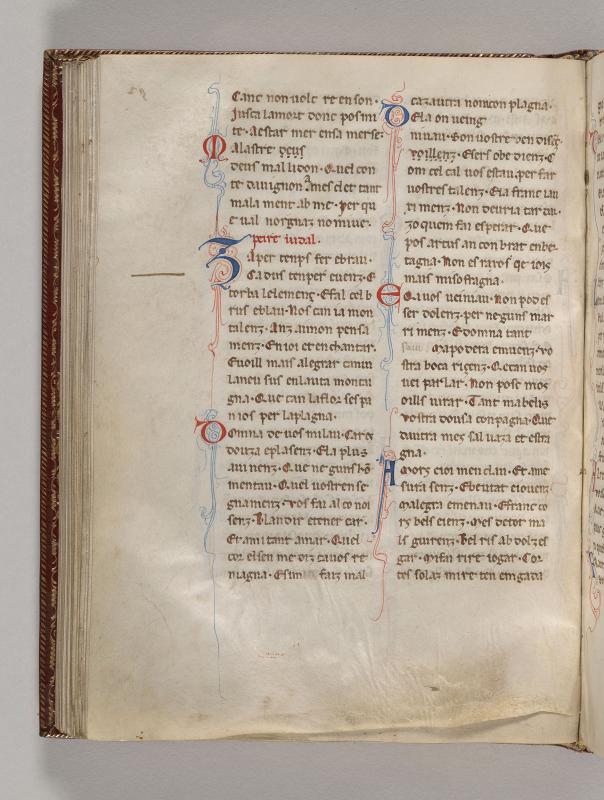 Canc non uolc re en son.
Iusca lamort donc pos mi
te. aestar mer en sa merse.
Malastre deus
deus mal li don. Quel con
te dauignon
mala ment ab me. per qu
e ual
peire uidal.
Baper temps fer ebrau.
torba lelemenz. Efal colb
rus eblau. Nos can ia mon
talenz. Anz aimon pensa
menz. En ioi et en chantar.
Euoill mais alegrar canun
laneu sus en lauta monta
gna. Que can la flor sespa
n ios per la plagna.
Domna de uos milau. Care
douza e plasenz. Ela plus
auinenz. Que ne guns hom
mentau. Quel uostren se
gnamenz. Vos fai al co noi
senz. Blandir e tener car.
Et ami tant amar. Quel
cor el sen me diz ca uos re
magna. Esim faiz mal
caz autra nomcon plagna.
Ela on ueing
miuau. Son uostre ben
voillenz. Esers obe dienz. C
om cel cal uos estau. per far
uostres talenz. Eia franc iau
zimenz. Non deuria tar
zo quem fai esperar. Que
pos artus an con brat enbe
tagna. Non es razos qe iois
mais misofragna.
E uos ueiaiau. Non pod es
ser dolenz. per neguns mar
rimenz. Edomna tant
sau poders emuenz. Vo
stra boca rizenz. Qecan uos
uei parlar. Non posc mos
oills uirar. Tant mabelis
vostra dousa conpagna. Que
dautra mes sal uaza et estra
gna.
Amors eioi men clau. Et ame
sura senz. Ebeutat eiouenz.
Malegra emenau. Efranc co
rs bels e ienz. Mes detot ma
ls guirenz. Bel ris ab dolz es
gar. Mi fai rire iogar. Cor
tes solaz mi re ten en gada